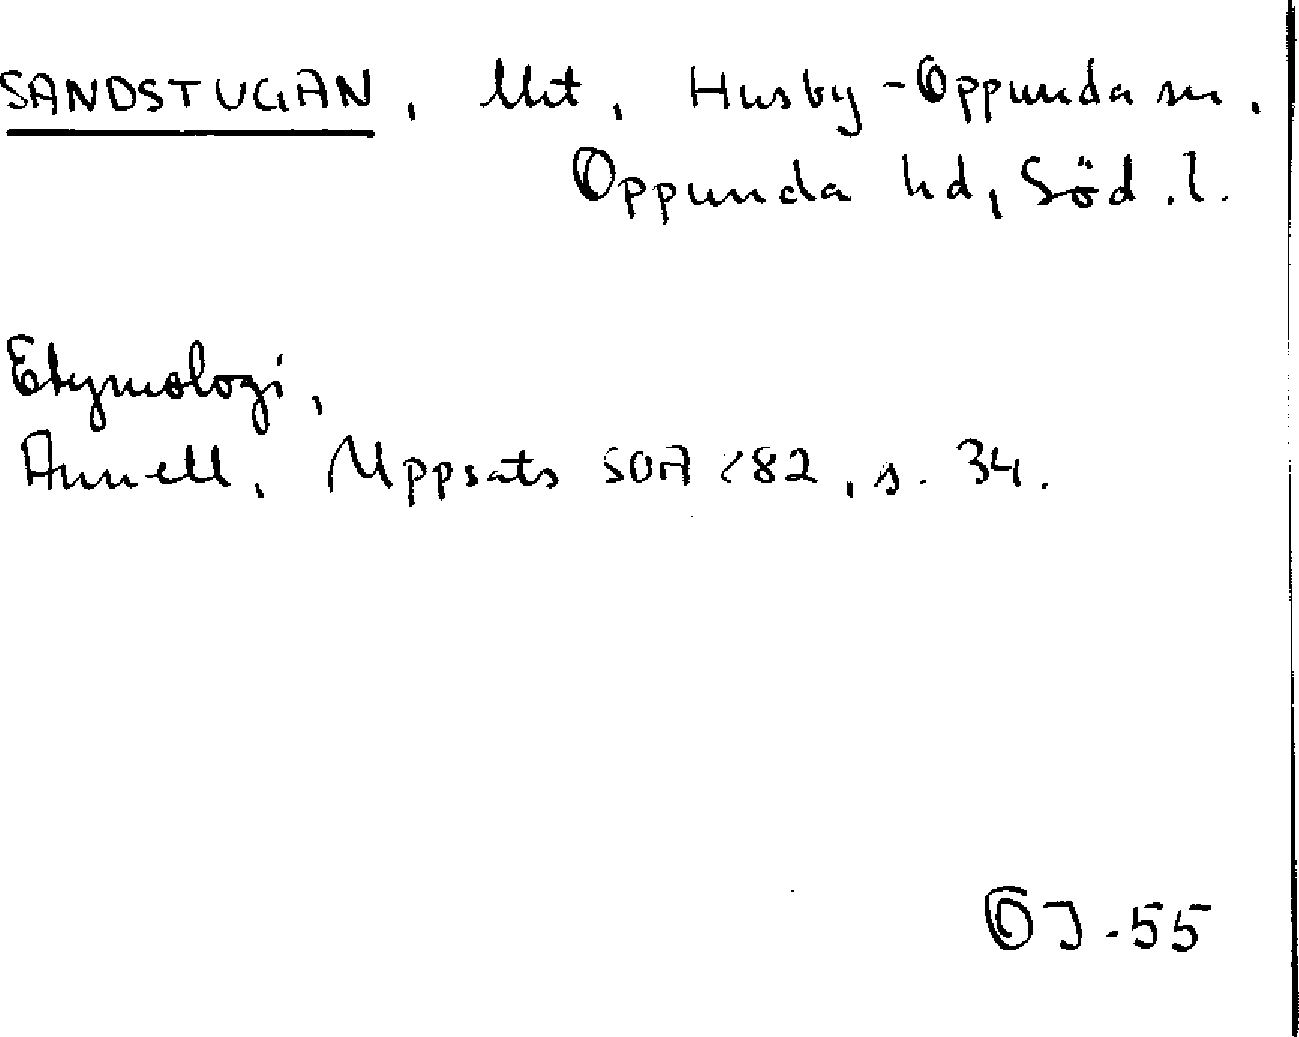 SANDSTUGAN, lht, Husby-Oppunda sn,
Oppunda hd, Söd. l.
Etymologi,
Annell, Uppsats SOA 282, s. 34.
OJ-55